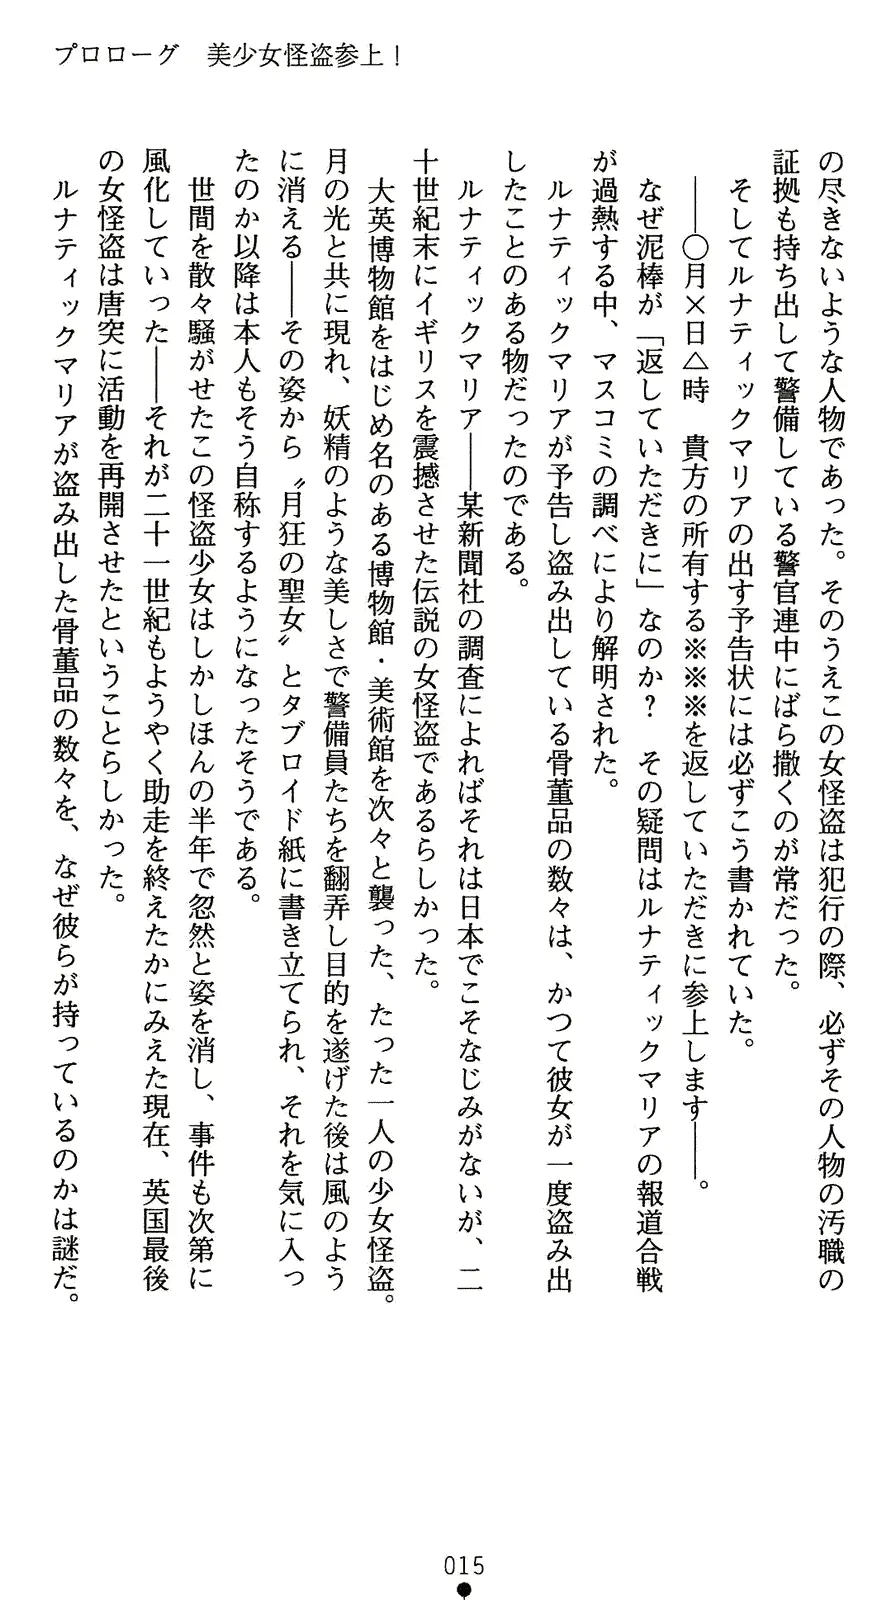 プロローグ　美少女怪盗参上！
の尽きないような人物であった。そのうえこの女怪盗は犯行の際、必ずその人物の汚職の
証拠も持ち出して警備している警官連中にばら撒くのが常だった。
　そしてルナティックマリアの出す予告状には必ずこう書かれていた。
　――〇月×日△時　貴方の所有する※※※を返していただきに参上します――。
　なぜ泥棒が「返していただきに」なのか？　その疑問はルナティックマリアの報道合戦
が過熱する中、マスコミの調べにより解明された。
　ルナティックマリアが予告し盗み出している骨董品の数々は、かつて彼女が一度盗み出
したことのある物だったのである。
　ルナティックマリア――某新聞社の調査によればそれは日本でこそなじみがないが、二
十世紀末にイギリスを震撼させた伝説の女怪盗であるらしかった。
　大英博物館をはじめ名のある博物館・美術館を次々と襲った、たった一人の少女怪盗。
月の光と共に現れ、妖精のような美しさで警備員たちを翻弄し目的を遂げた後は風のよう
に消える――その姿から〝月狂の聖女〟とタブロイド紙に書き立てられ、それを気に入っ
たのか以降は本人もそう自称するようになったそうである。
　世間を散々騒がせたこの怪盗少女はしかしほんの半年で忽然と姿を消し、事件も次第に
風化していった――それが二十一世紀もようやく助走を終えたかにみえた現在、英国最後
の女怪盗は唐突に活動を再開させたということらしかった。
　ルナティックマリアが盗み出した骨董品の数々を、なぜ彼らが持っているのかは謎だ。
015